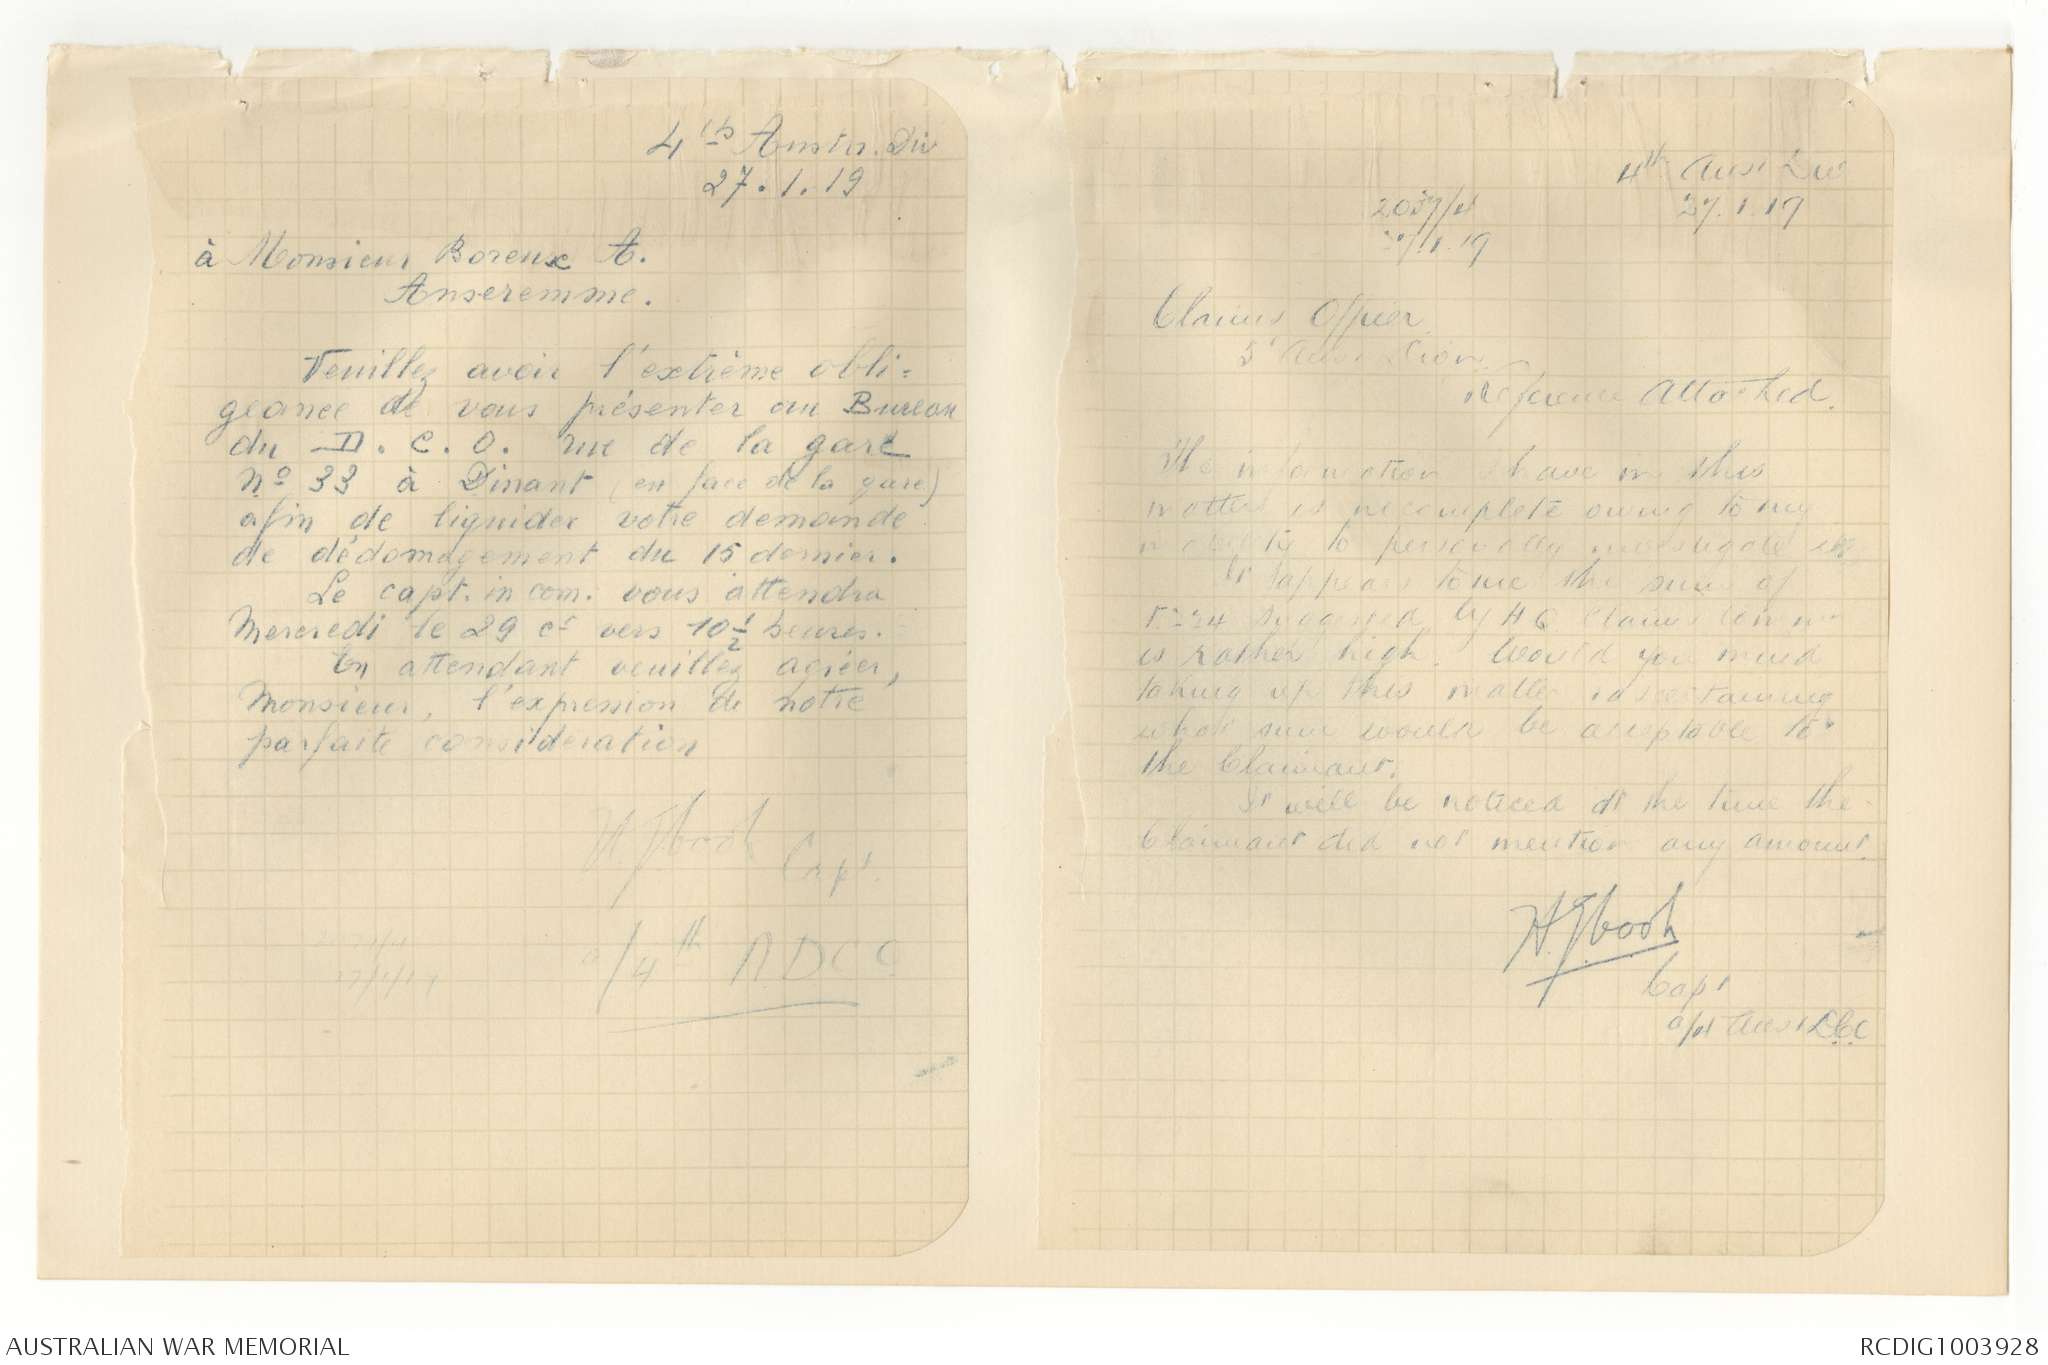 4th Austr. Div
27.1.19
à Monsieur Boreux A.
Anseremme.
Veuillez avoir l'extrème obli=
geance de vous présenter au Bureau
du D.C.O. rue de la gare
No 33 à Dinant (en face de la gare)
afin de liquider votre demande
de dédomagement du 15 dernier.
Le capt. in com. vous attendra
Mercredi le 29 ct vers 10 1/2 heures.
En attendant veuillez agréer,
Monsieur, l'expression de notre
parfaite consideration
Capt.
4th
4th Aust Div
27.1.19
27.1.19
Claims Officer
Aust Divn
Reference Attached.
The information I have in this
matter is incomplete owing to my
inability to personally investigate it
It appears to me the sum of
by HQ Claims Commn
is rather high. Would you mind
taking up this matter ascertaining
what sum would be acceptable to
the Claimant.
It will be noticed at the time the
Claimant did not mention any amount.
Capt
Aust
AUSTRALIAN WAR MEMORIAL
RCDIG1003928